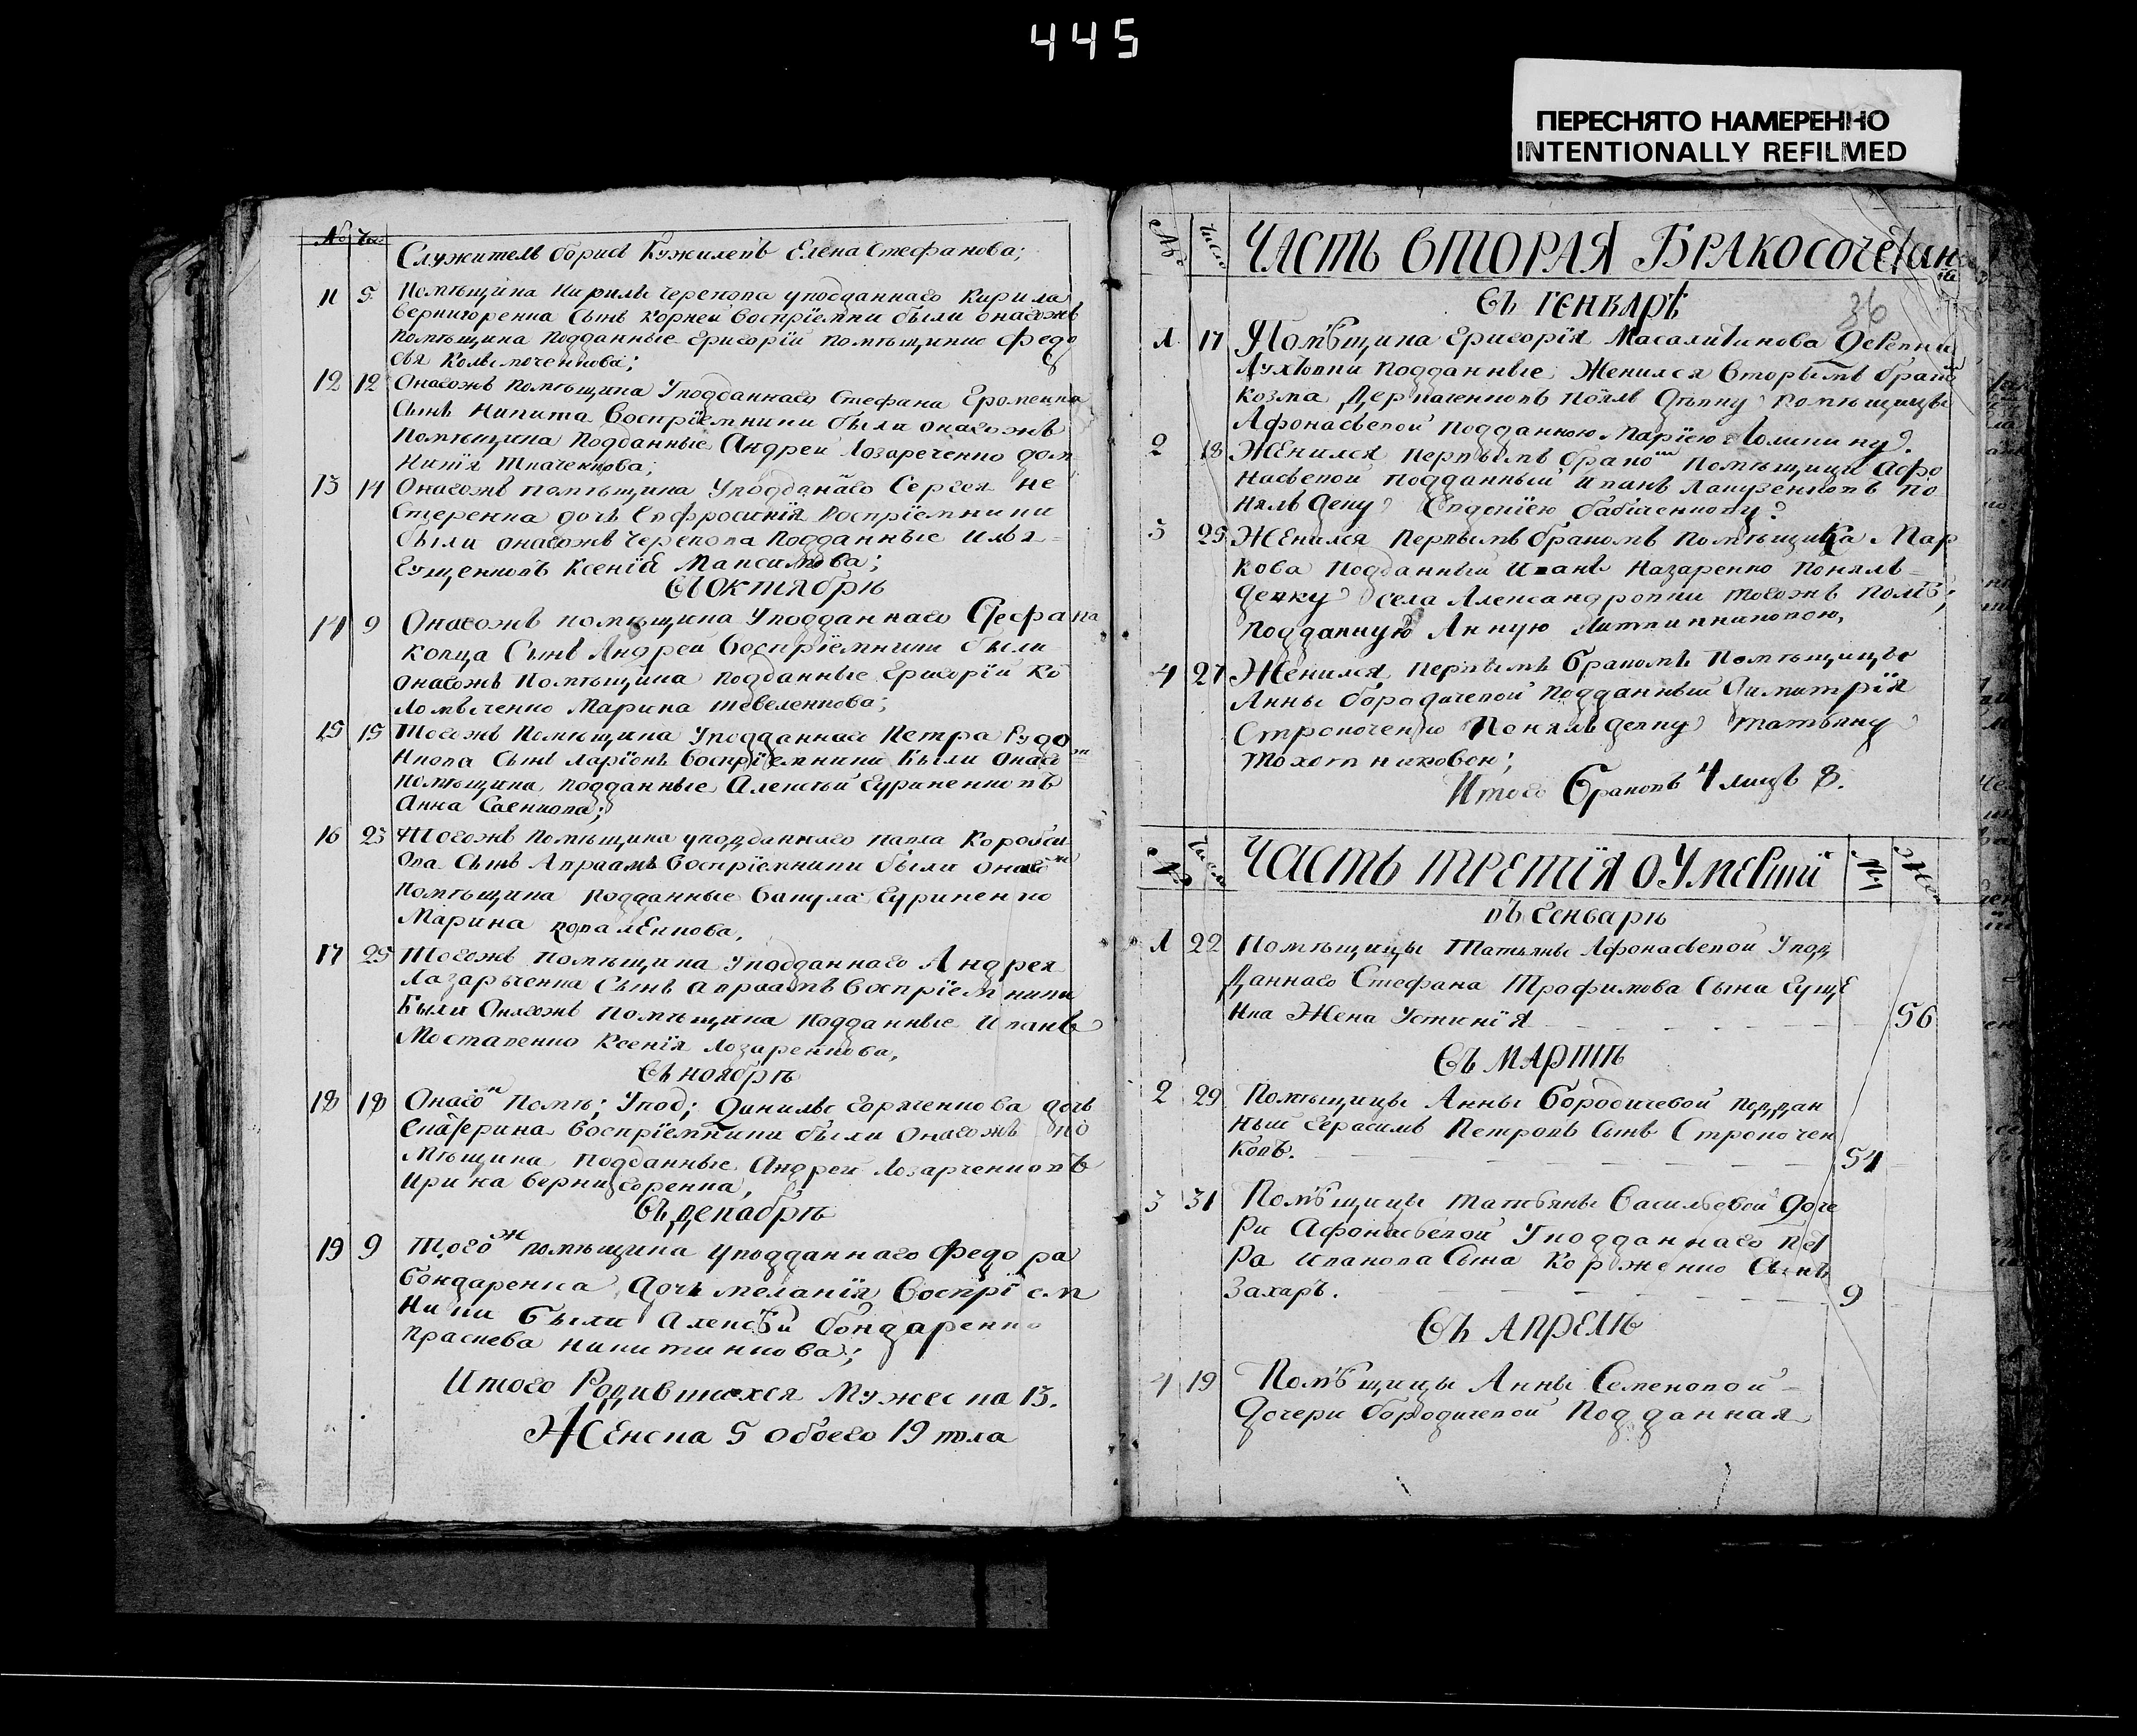 445
ПЕРЕСНЯТО НАМЕРЕННО
INTENTIONALLY REFILMED
№ Чи
Служитель борисъ Кужилевъ Елена Стефанова;
11 5 Помѣщика Кирилы черкова уподданнаго Кирила
Вернигоренка Сынъ Корней Воспрїемники были онагожъ
помѣщика подданные Григорїй помѣщикию Федо
сья
12 12 Онагожъ помѣщика Уподданнаго Стефана Еременка
Сынъ Никита Воспрїемники были онагожъ
Помѣщика подданные Андрей Лозареченко дом
Никїя Ткаченкова;
13 14 Онагожъ помѣщика Уподданнаго Сергея не
стеренка дочь Евфросинїя Воспрїемники
были онагожъ черкова подданные Илья
Гущенковъ Ксенїя Максимова;
Въ октябрѣ
14 9 Онагожъ помѣщика Уподданнаго Стефана
ковца Сынъ Андрей Воспрїемники были
онагожъ Помѣщика подданные Григорїй Ко
ломыченко Марина шевеленкова;
15 15 Тогожъ Помѣщика Уподданнаго Петра Рудо
Сынъ ларїонъ Воспрїемники были онаго ж
помѣщика подданные Алексѣй Гуриненковъ
Анна Саенкова;
16 23 Тогожъ помѣщика уподданнаго павла Коробки
ова Сынъ Авраамъ Воспрїемники были онаго ж
помѣщика подданные вакула Гуриненко
Марина коваленкова,
17 25 Тогожъ помѣщика Уподданнаго Андрея
Лазарыченка Сынъ авраамъ Воспрїемники
были Онагожъ помѣщика подданные Иванъ
Мостапенко Ксенїя лозаренкова,
Въ ноябрѣ
18 18 Онаго ж помѣ; Упод; Данилы дочь
Екатерина Воспрїемники были Онагожъ по
мѣщика подданные Андрей Лозарченковъ
Ирина вернигоренка,
Въ декабрѣ
19 9 Того ж помѣщика уподданнаго Федора
бондаренка Дочь меланїя Воспрїем
ники были Алексѣй бондаренко
праскева никитинкова;
Итого Родившихся Мужеска 13.
Женска 5 обоего 19 пола
№ Числ ЧАСТЬ ВТОРАЯ БРАКОСОЧЕТАН
36
Въ ГЕНВАРѢ
1 17 Помѣщика Григорїя Масалитинова Деревни
подданные Женился Вторымъ брако
козма Деркаченковъ понялъ дѣвку помѣщицы
Афонасьевой подданною Марїею
2 18 Женился первымъ брако м помѣщицы Афо
насьевой подданный иванъ по
нялъ девку Евдокїею бабиченкову
3 25 Женился первымъ бракомъ помѣщика Мар
кова подданный Иванъ Назаренко понялъ
девку села Александровки тогожъ помѣ;
подданную Анную Литвинниковою,
4 27 Женился первымъ бракомъ помѣщицы
Анны бородичевой подданный Димитрїя
Строкоченко Понялъ девку татьяну
тохотниковою;
Итого браковъ 4 лицъ 8.
№ Числ ЧАСТЬ ТРЕТЇЯ О УМЕРШИ х Му Жен
въ Генварѣ
1 22 Помѣщицы Татьяны Афонасьевой Упод
Даннаго Стефана Трофимова Сына Гуще
нка Жена Устинїя 56
Въ МАРТѢ
2 29 Помѣщицы Анны бородичевой поддан
ный Герасимъ Петровъ Сынъ Строкочен
ковъ. 54
3 31 Помѣщицы татьяны Васильевой доче
ри Афонасьевой Уподданнаго Пет
ра иванова Сына Корженко Сынъ
Захаръ. 9
Въ АПРЕЛѢ
4 19 Помѣщицы Анны Семеновой
Дочери бородичевой Подданная